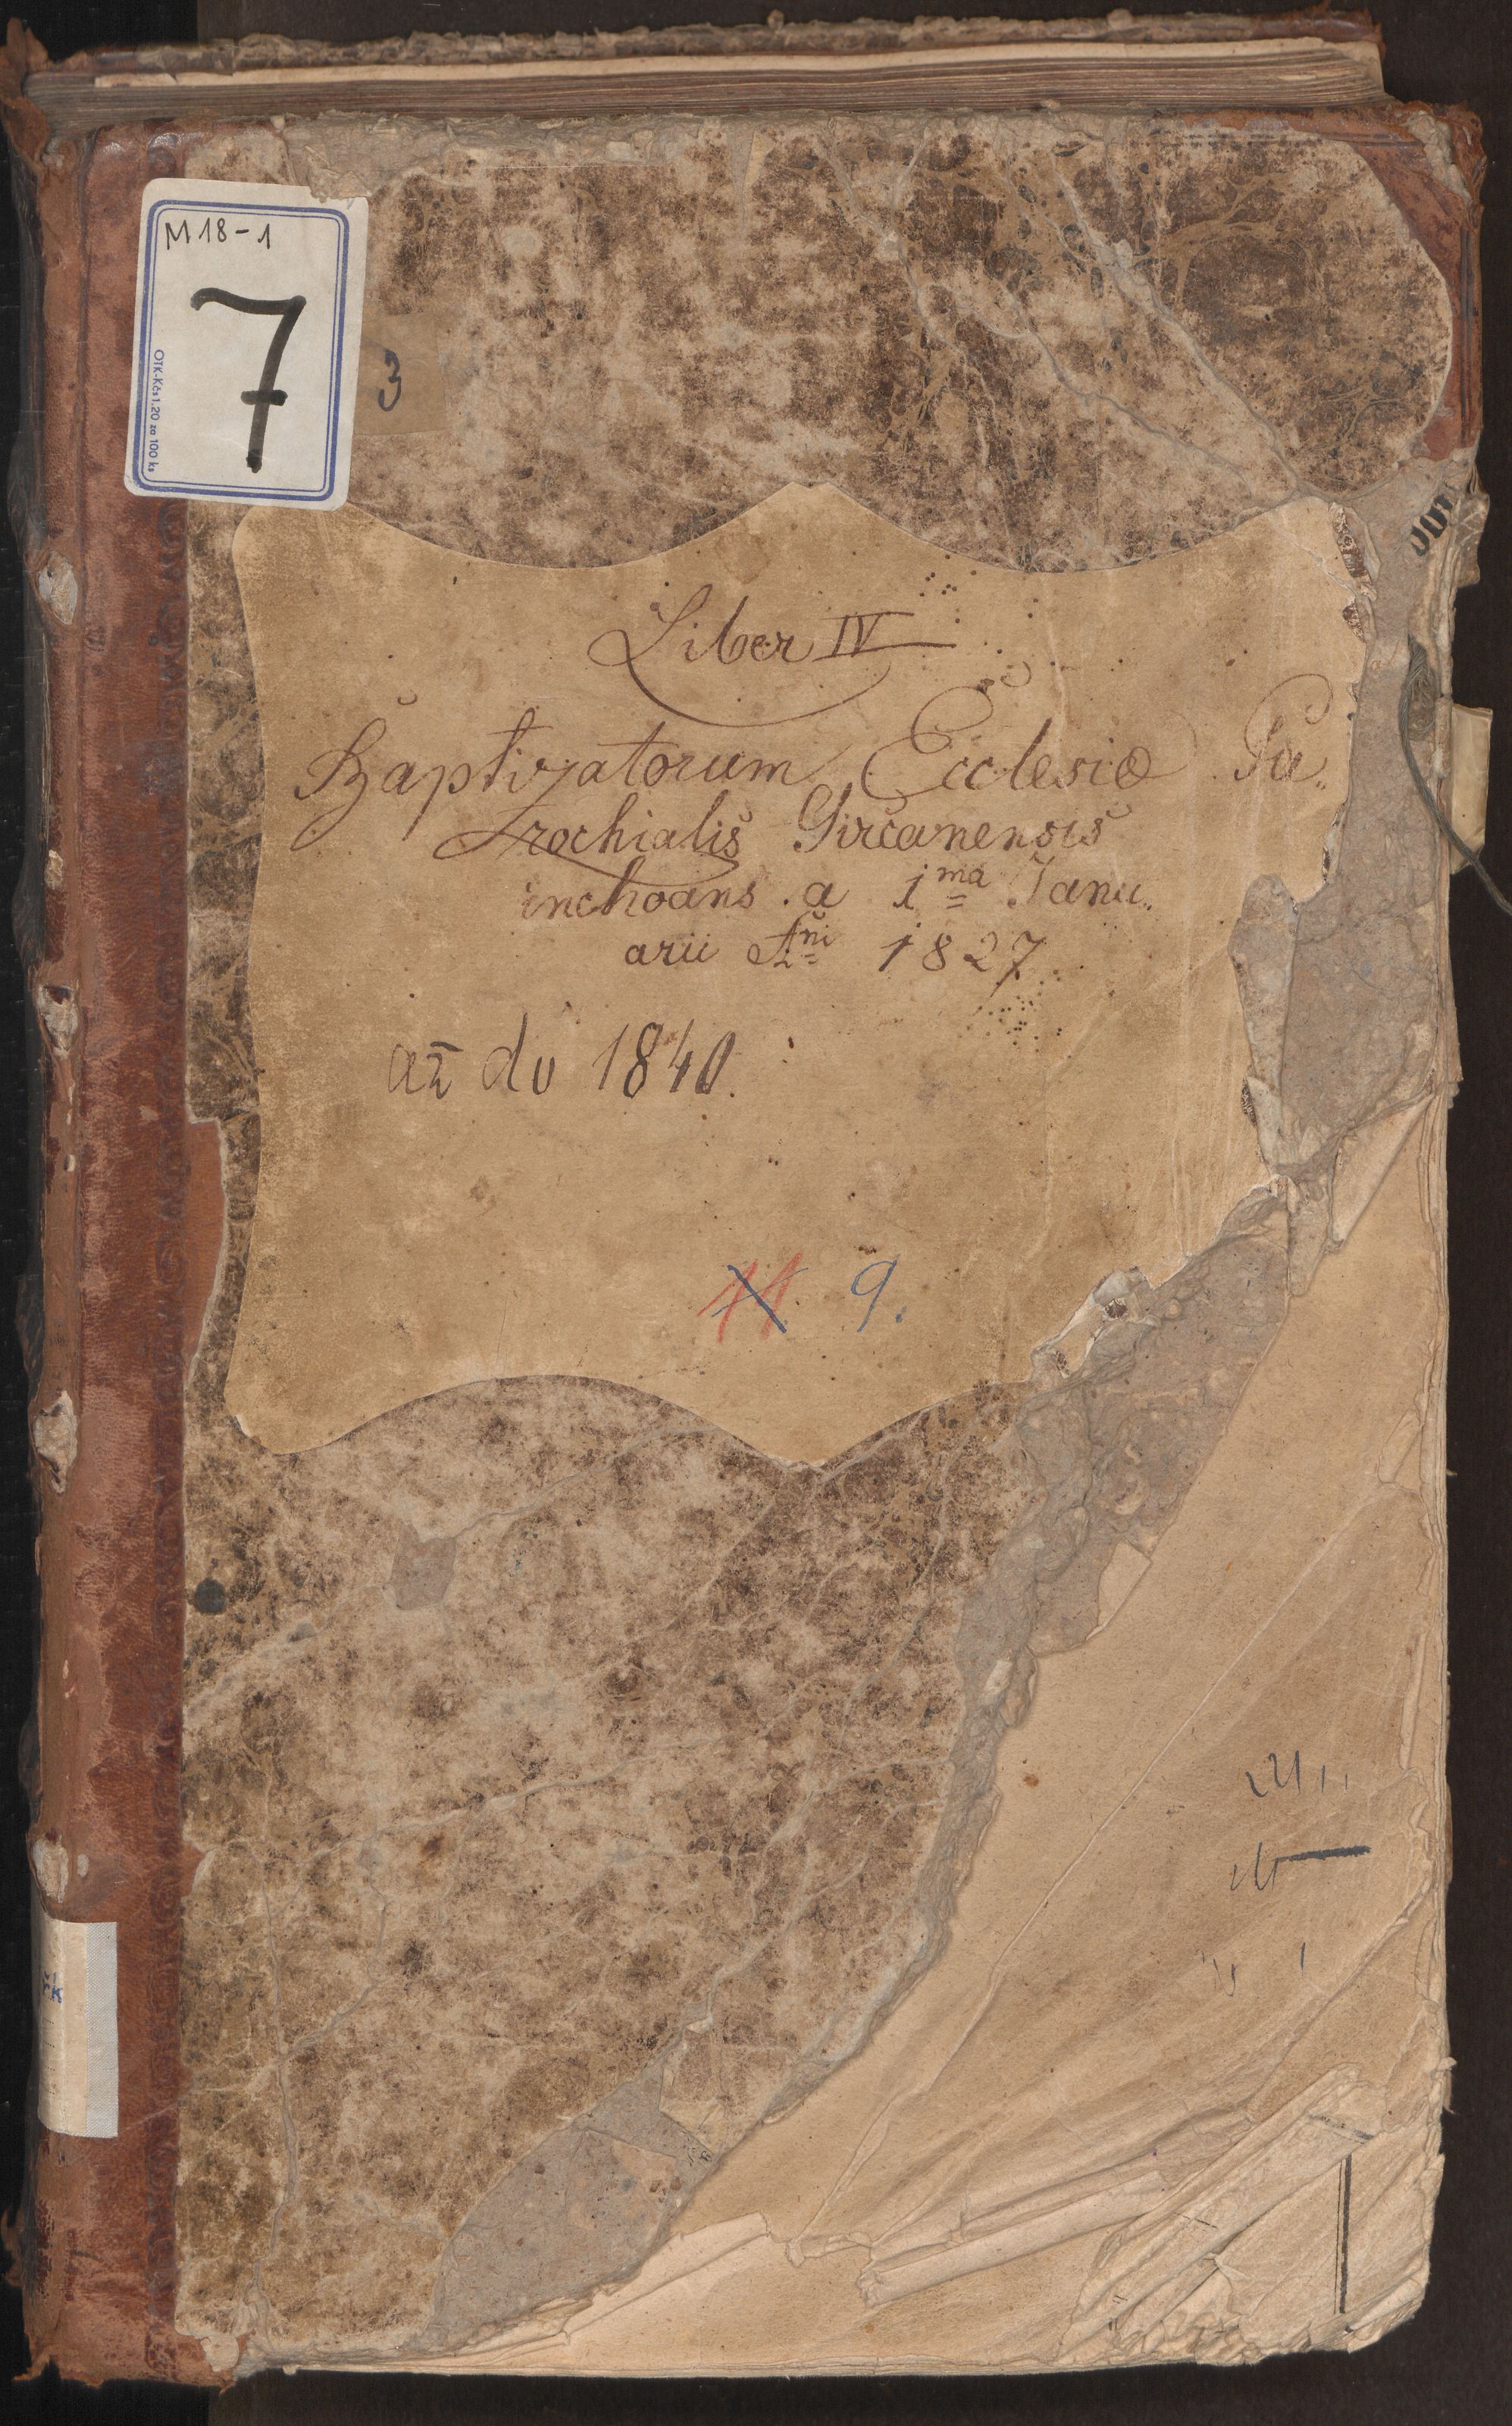 M 18-1
7
OTK-Kčs 1,20 za 100 ks
3
Liber IV
Baptizatorum Ecclesiæ Pa„
rochialis Girčanensis
inchoans a 1ma Janu„
arii Ani 1827
až do 1840.
11. 9.